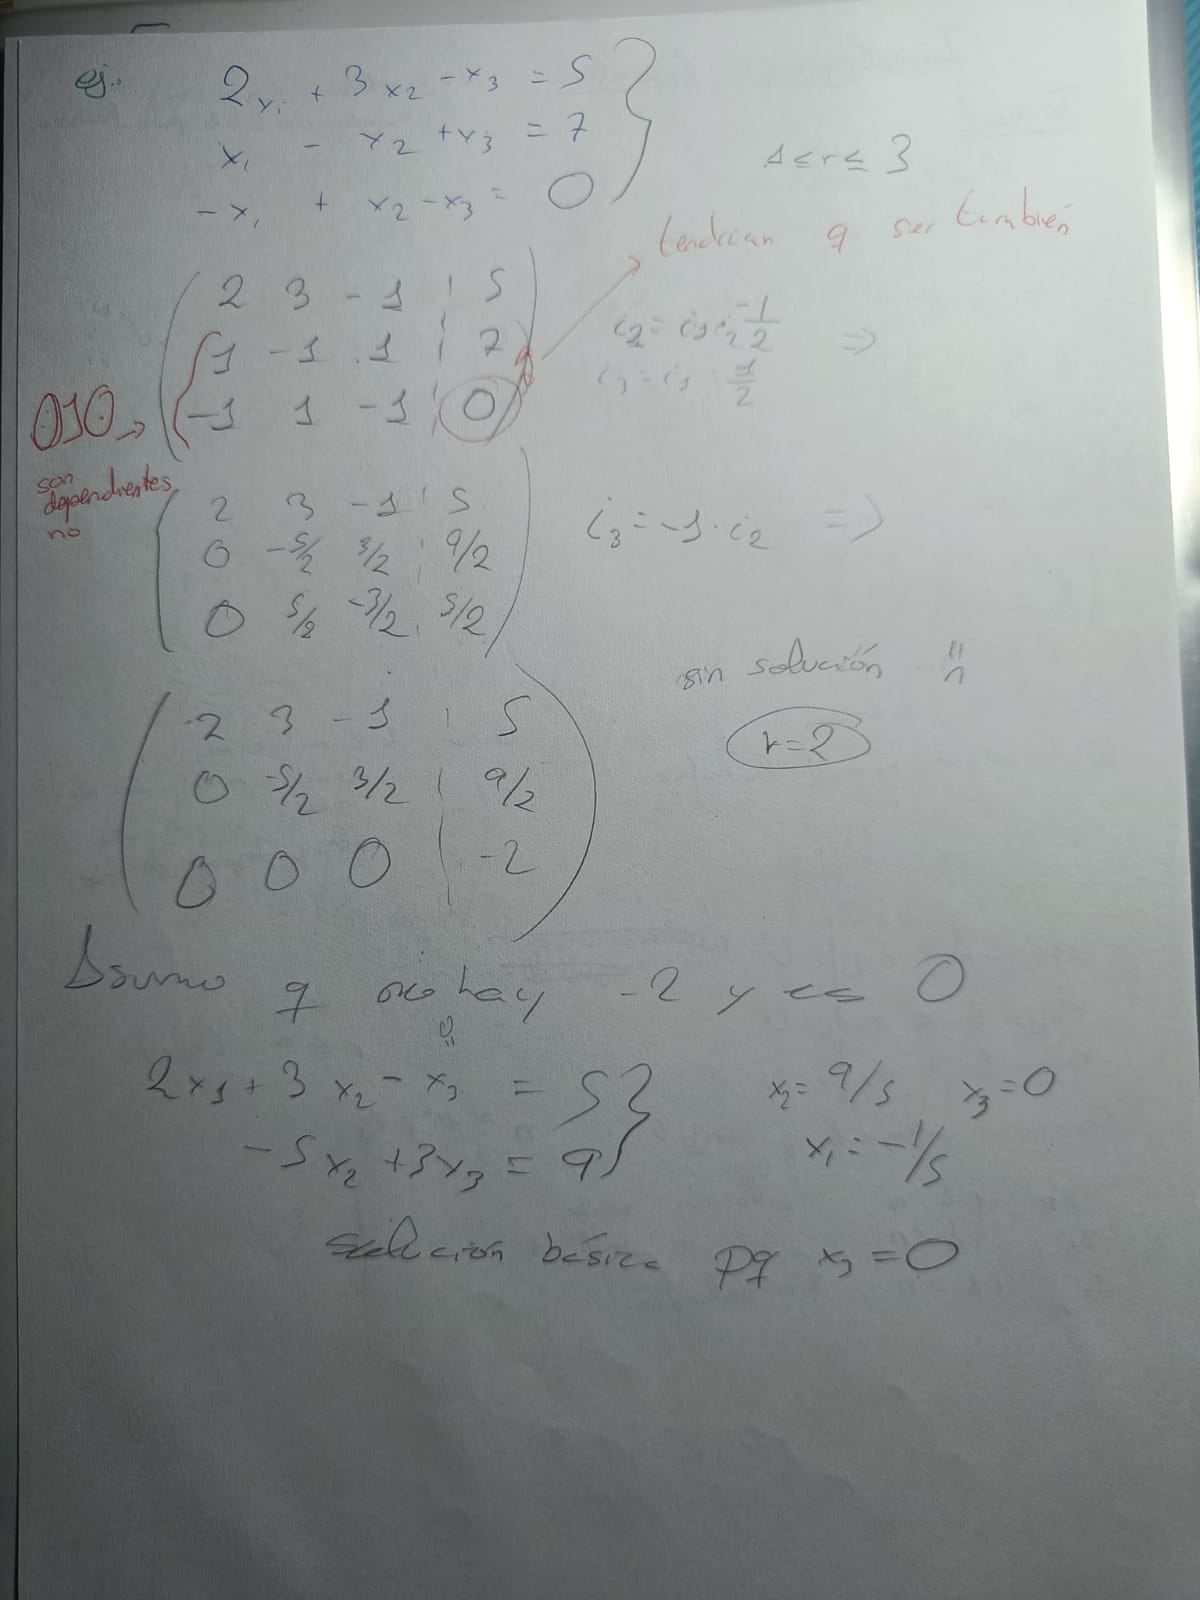 ej.. 2x₁ + 3x₂ - x₃ = 5
x₁ - x₂ + x₃ = 7
-x₁ + x₂ - x₃ = 0
1 ≤ r ≤ 3
tendrían q ser también
2 3 -1 | 5
1 -1 1 | 7
-1 1 -1 | 0
OJO →
son
dependientes
no
-1/2 =>
1/2
2 3 -1 | 5
0 -5/2 3/2 | 9/2
0 5/2 -3/2 | 5/2
i₃ = -1 · i₂ =>
sin solución
r=2
2 3 -1 | 5
0 -5/2 3/2 | 9/2
0 0 0 | -2
Asumo q no hay -2 y es 0
2x₁ + 3x₂ - x₃ = 5
-5x₂ + 3x₃ = 9
x₂ = 9/5 x₃ = 0
x₁ = -1/5
solución básica pq x₃ = 0